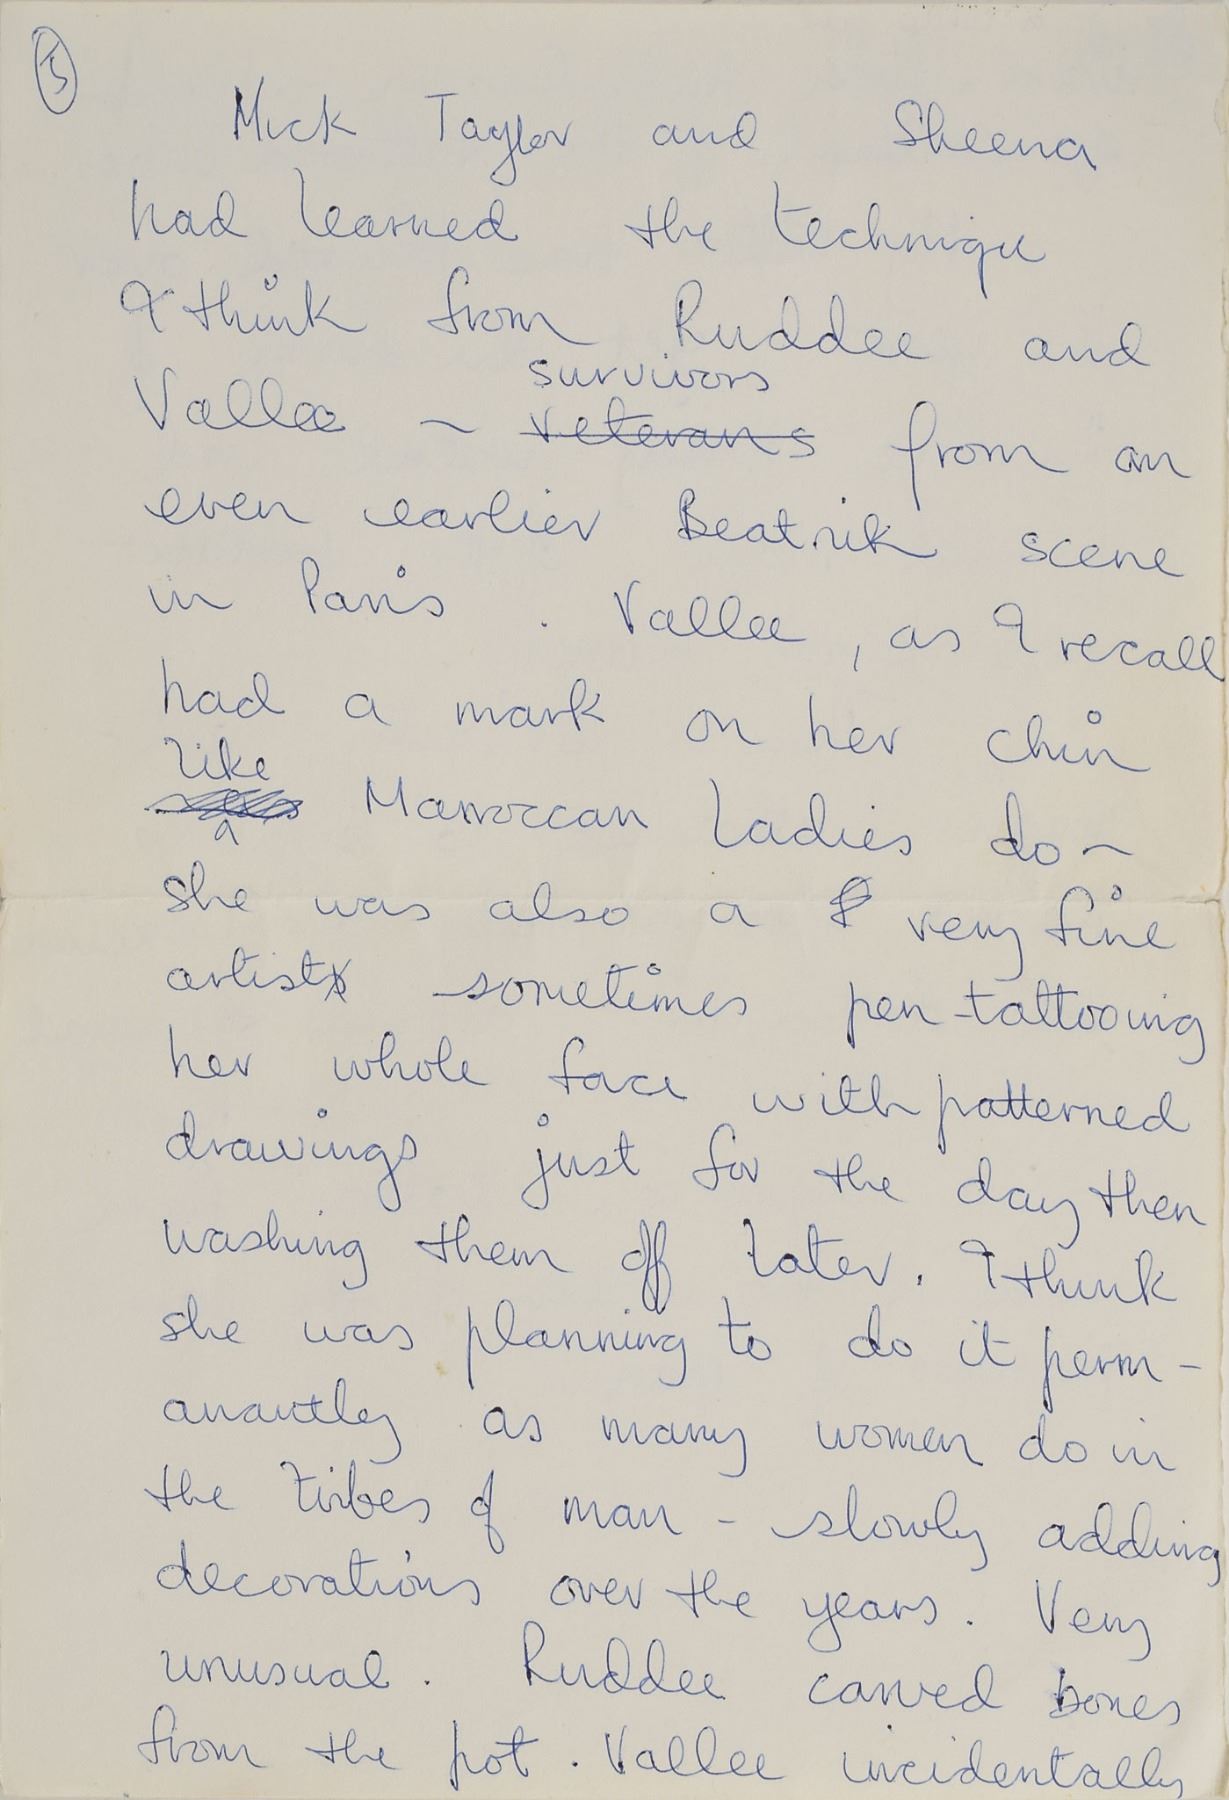 5
Mick Taylor and Sheena
had learned the techniqu
I think from Ruddee and
survivors
Vallee ~ veterans from an
even earlier Beatnik scene
in Paris . Vallee , as I recall
had a mark on her chin
like
Marroccan Ladies do ~
she was also a very fine
artist sometimes pen-tattooing
her whole face with patterned
drawings just for the day then
washing them off later. I think
she was planning to do it perm-
anantley as many women do in
the tribes of man - slowly adding
decorations over the years. Very
unusual. Ruddee carved bones
from the pot. Vallee incidentally